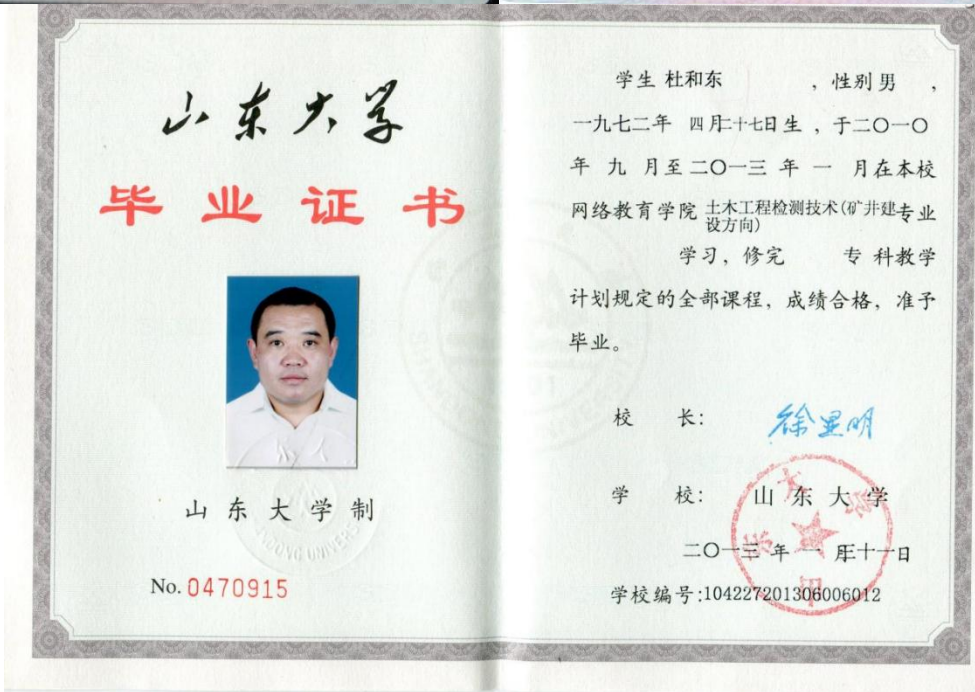 山东大学
毕业证书
山东大学制
No. 0470915
学生 杜和东 ，性别 男 ，
一九七二年 四月二十七日生 ，于二〇一〇
年 九 月至二〇一三 年 一 月在本校
网络教育学院 土木工程检测技术(矿井建设方向) 专业
学习，修完 专 科教学
计划规定的全部课程，成绩合格，准予
毕业。
校 长： 徐显明
学 校： 山 东 大 学
二〇一三 年 一 月二十一日
学校编号:104227201306006012